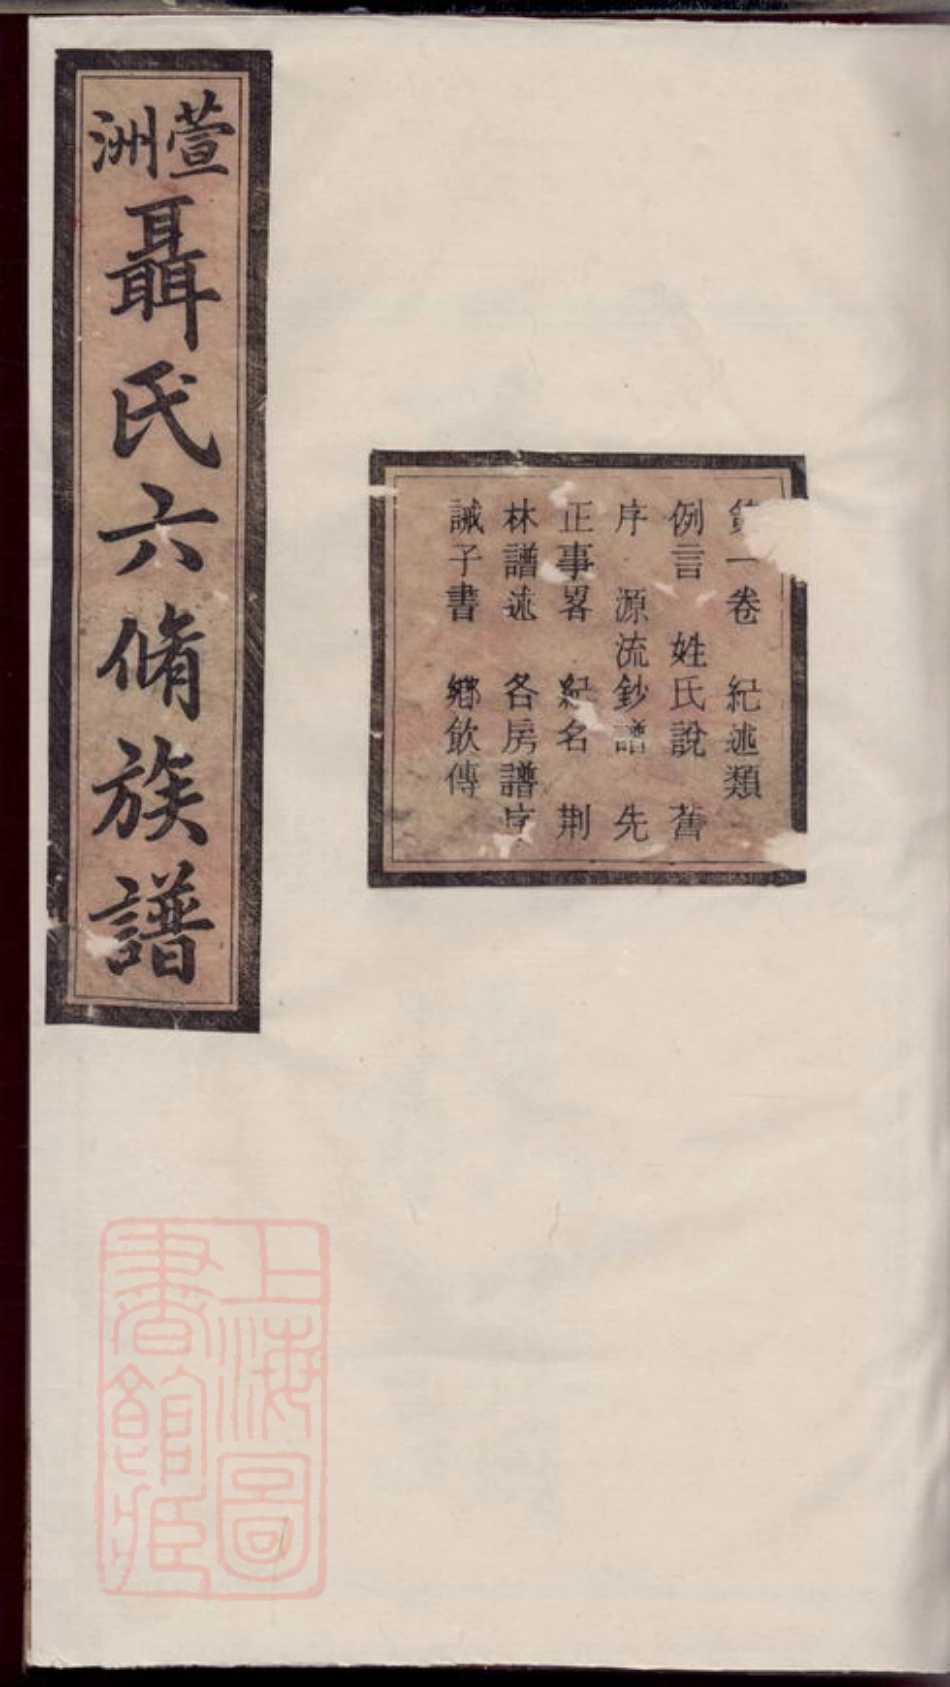 萱洲
聶氏六脩族譜
第一卷　紀述類
例言　姓氏說　舊
序　源流鈔譜　先
正事畧　紀名　荆
林譜述　各房譜序
誡子書　鄉飲傳
上海圖
書館藏